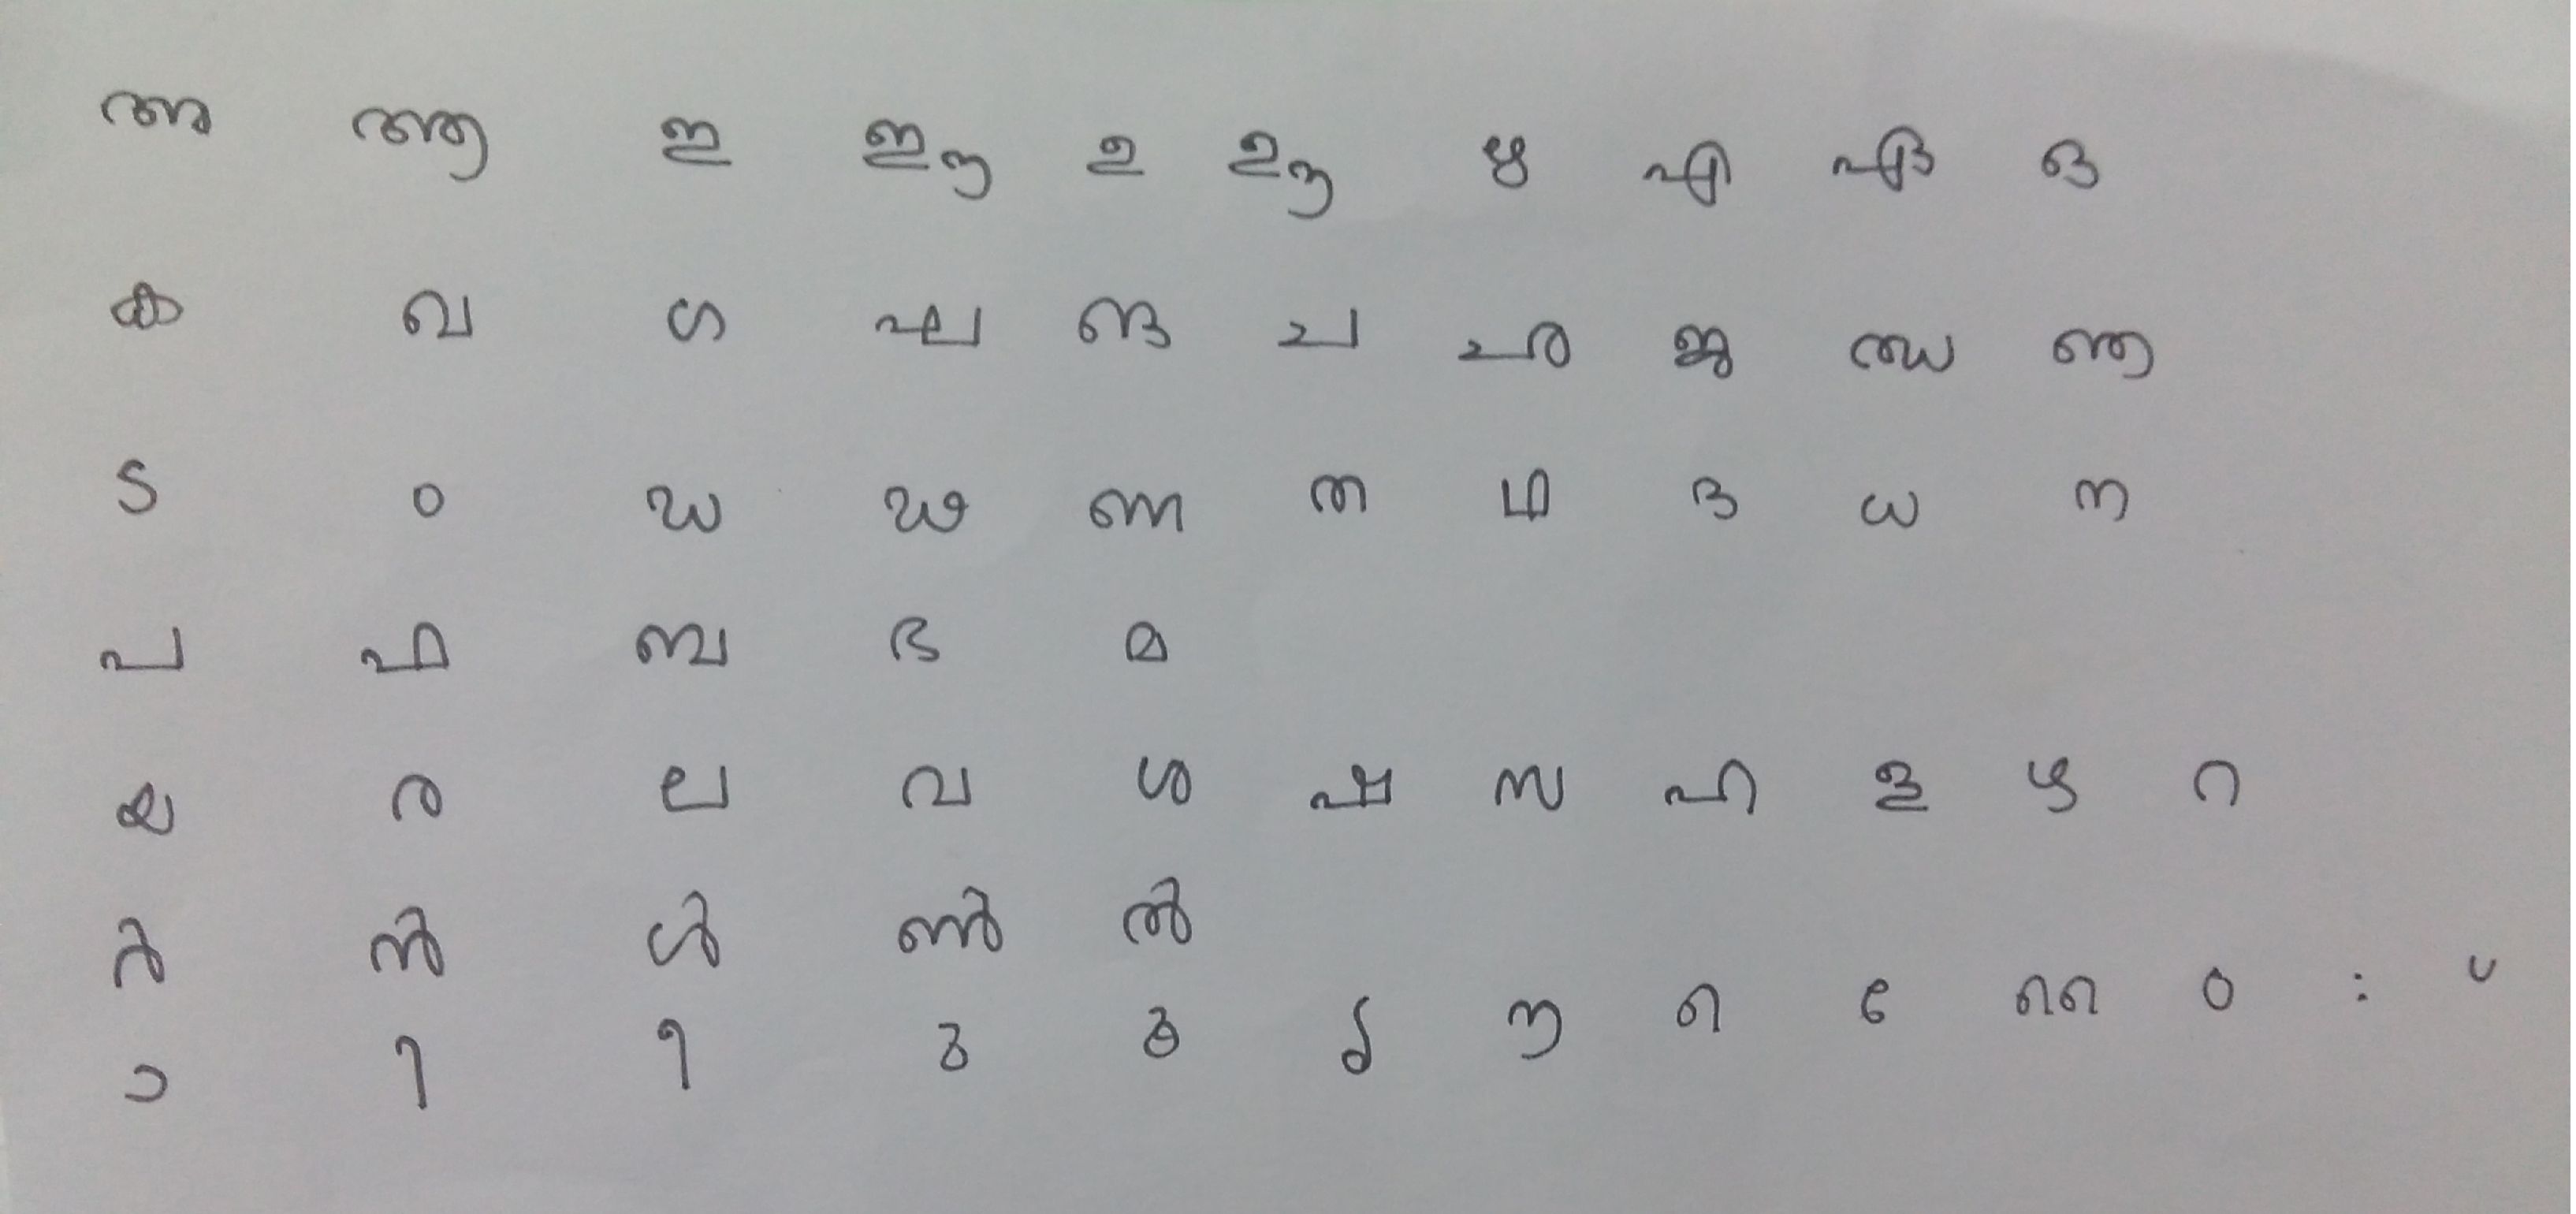 അ ആ ഇ ഈ ഉ ഊ ഋ എ ഏ ഒ
ക ഖ ഗ ഘ ങ ച ഛ ജ ഝ ഞ
ട ഠ ഡ ഢ ണ ത ഥ ദ ധ ന
പ ഫ ബ ഭ മ
യ ര ല വ ശ ഷ സ ഹ ള ഴ റ
ർ ൻ ൾ ൺ ൽ
ാ ി ീ ു ൂ ൃ ൗ െ േ ൈ ം ഃ ്